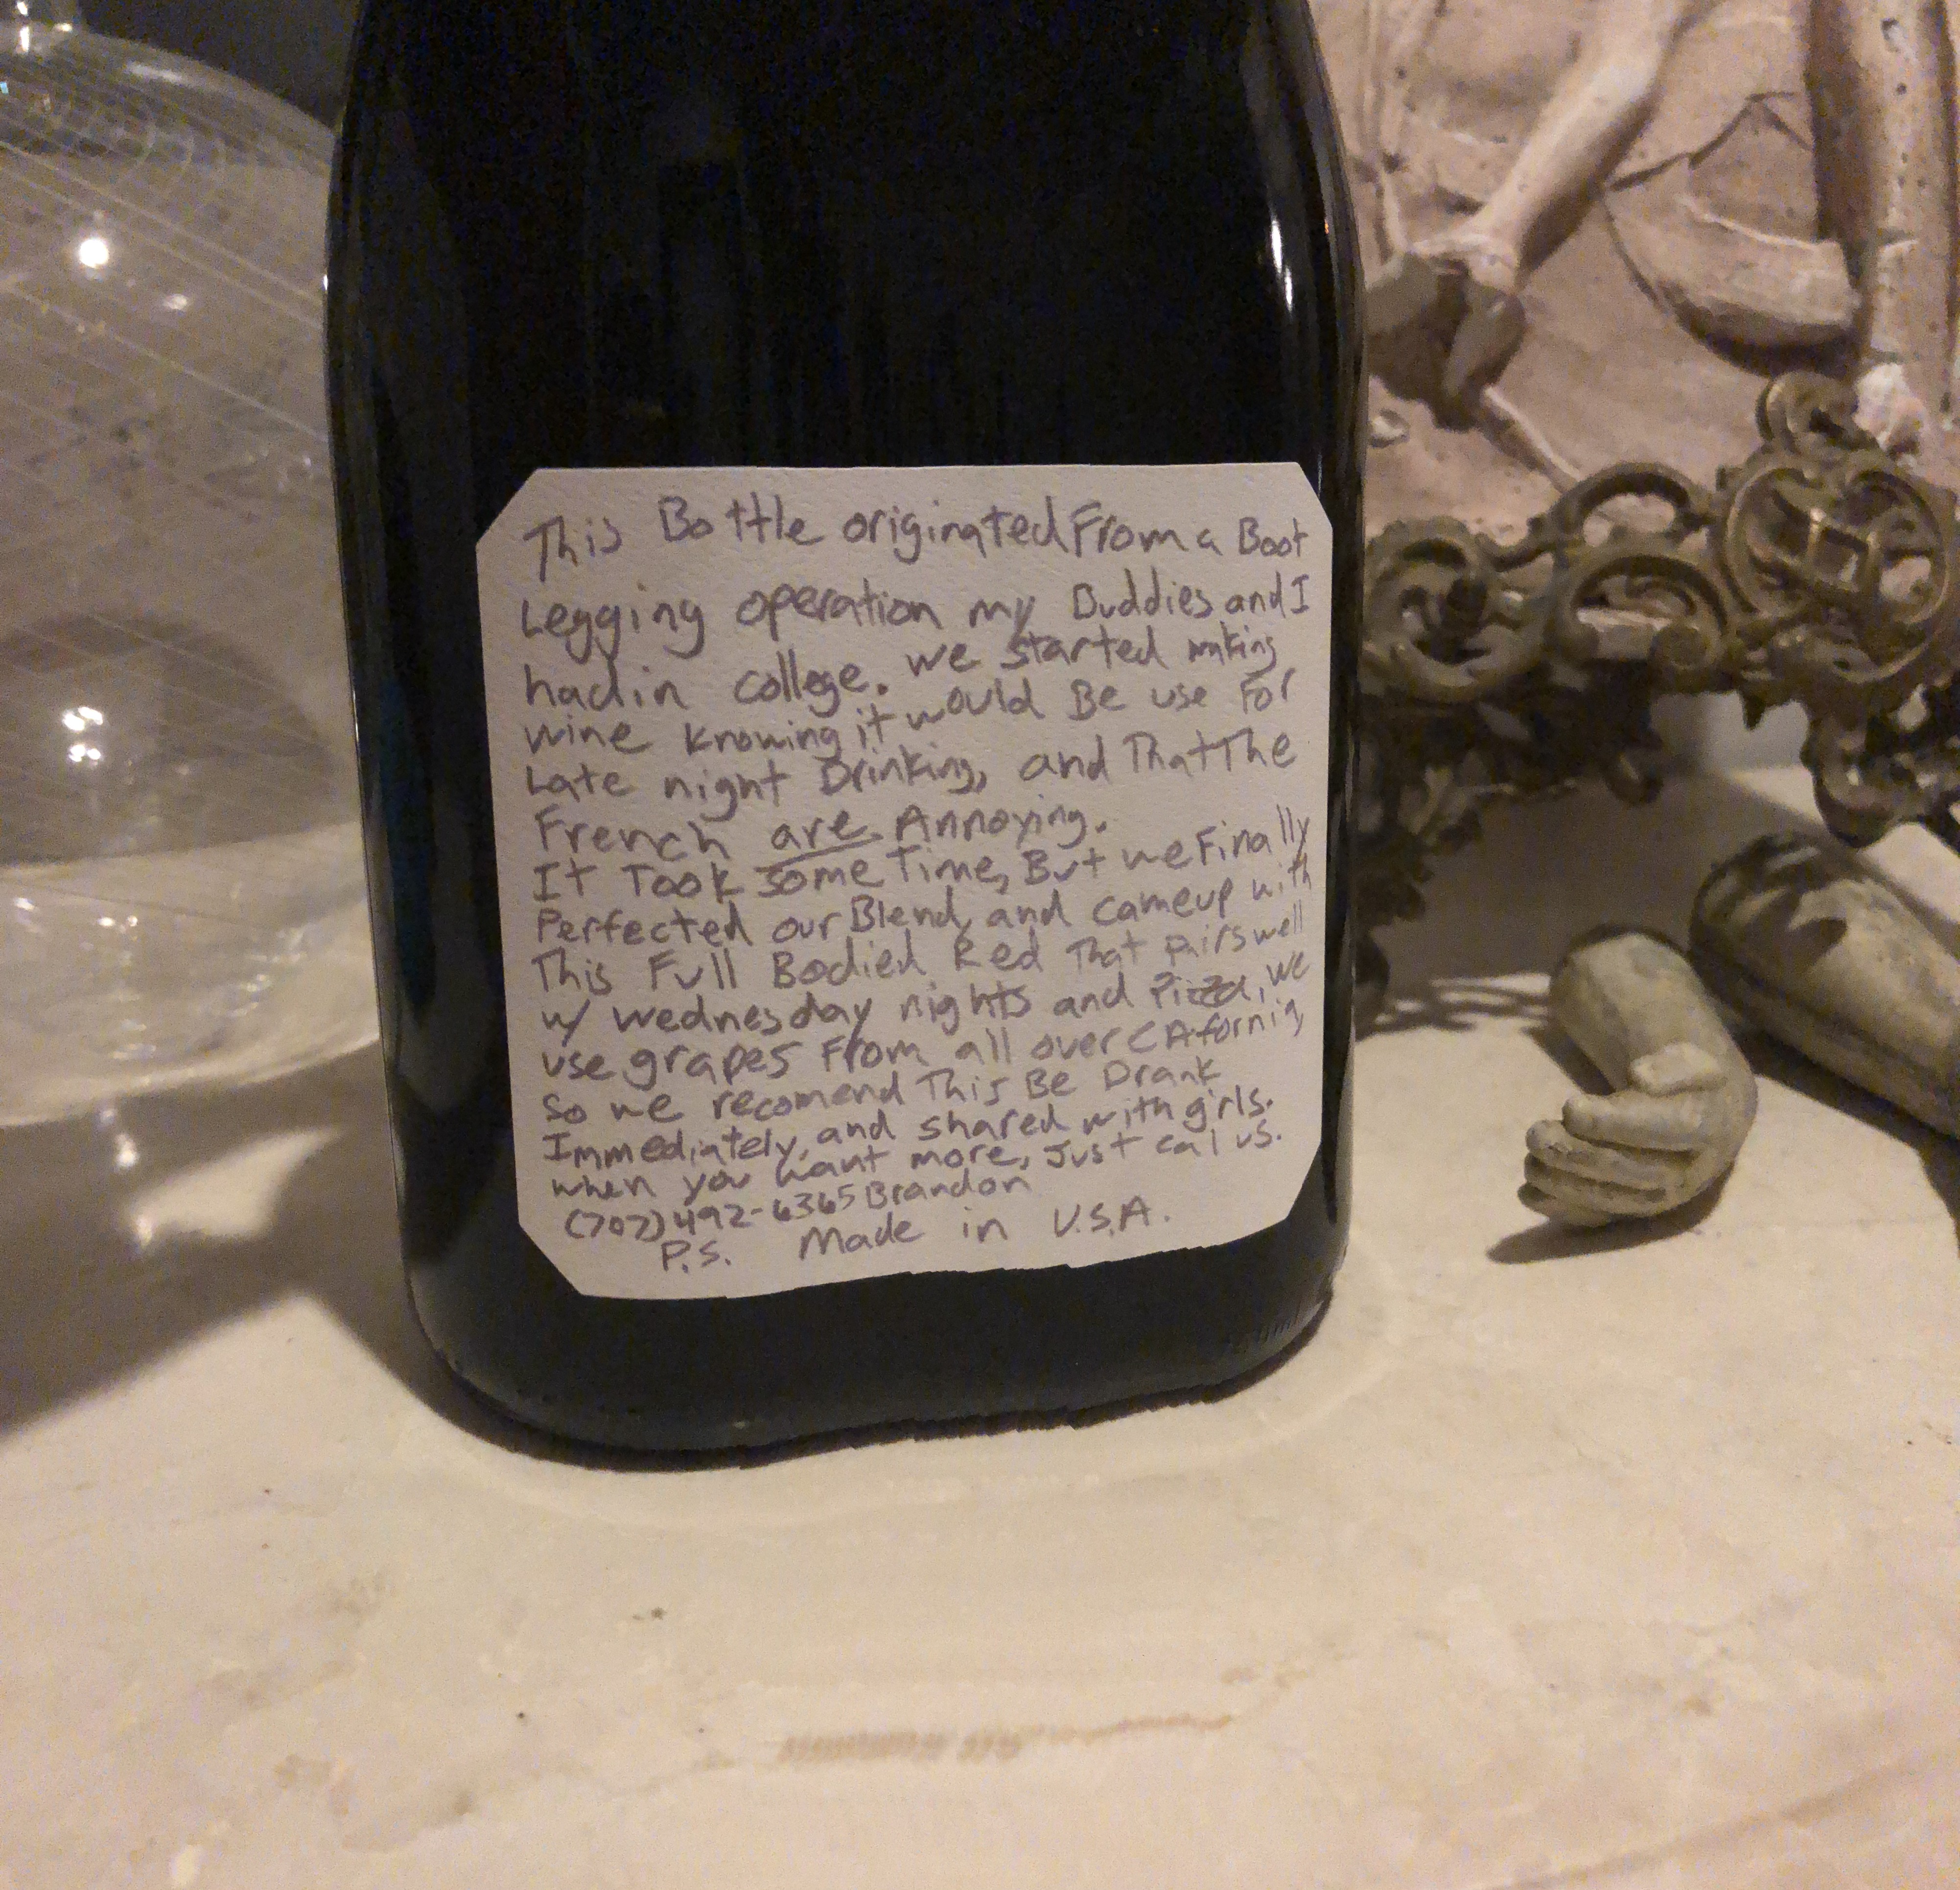 This Bottle originated From a Boot
Legging operation my Buddies and I
had in college. we started making
wine knowing it would Be use For
Late night Drinking, and That The
French are Annoying.
It Took some Time, But we Finally
Perfected our Blend, and came up with
This Full Bodied Red That pairs well
w/ wednesday nights and Pizza, we
use grapes From all over CAfornia,
so we recomend This Be Drank
Immediately, and shared with girls.
when you want more, Just call us.
(707) 492-6365 Brandon
P.S. Made in U.S.A.